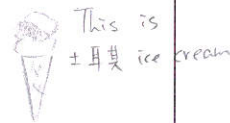 This is
土耳其 ice cream